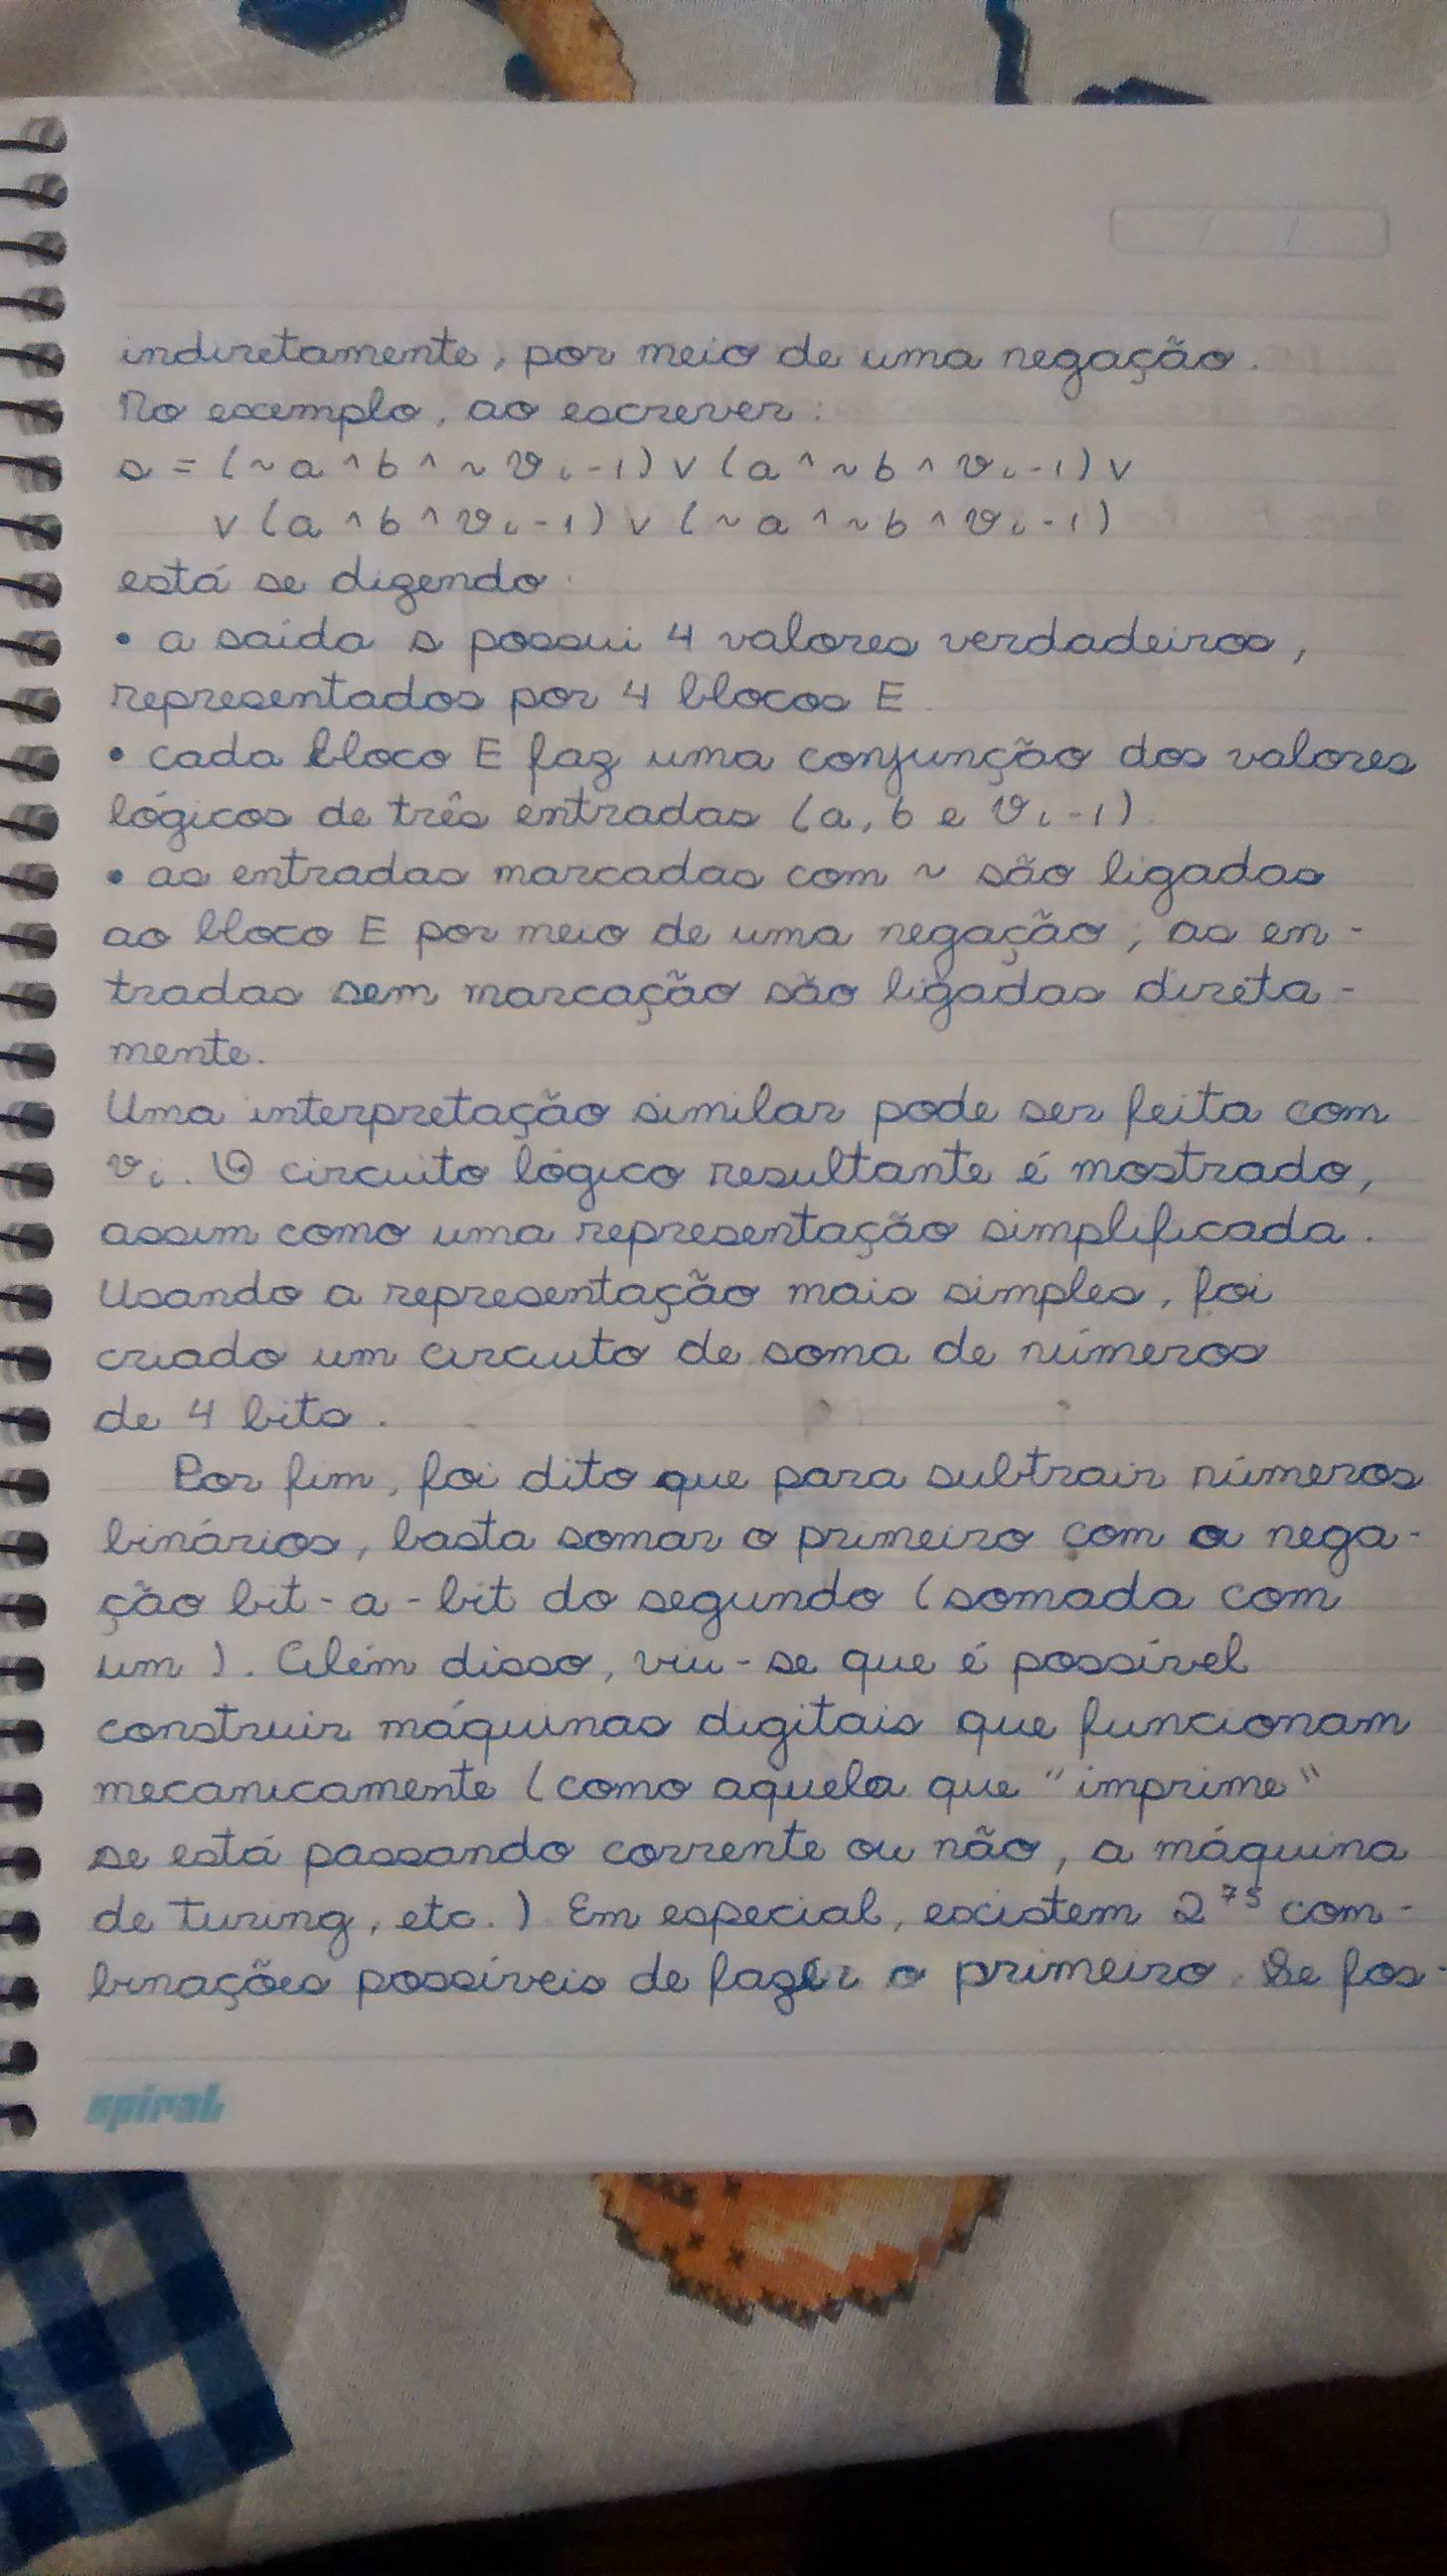 indiretamente, por meio de uma negação.
No exemplo, ao escrever:
s = (~a ^ b ^ ~ v i - 1) v (a ^ ~ b ^ v i - 1) v
v (a ^ b ^ v i - 1) v (~ a ^ ~ b ^ v i - 1)
está se dizendo:
• a saída s possui 4 valores verdadeiros,
representados por 4 blocos E.
• cada bloco E faz uma conjunção dos valores
lógicos de três entradas (a, b e v i - 1).
• as entradas marcadas com ~ são ligadas
ao bloco E por meio de uma negação; as en-
tradas sem marcação são ligadas direta-
mente.
Uma interpretação similar pode ser feita com
v i. O circuito lógico resultante é mostrado,
assim como uma representação simplificada.
Usando a representação mais simples, foi
criado um circuito de soma de números
de 4 bits.
Por fim, foi dito que para subtrair números
binários, basta somar o primeiro com a nega-
ção bit-a-bit do segundo (somada com
um). Além disso, viu-se que é possível
construir máquinas digitais que funcionam
mecanicamente (como aquela que "imprime"
se está passando corrente ou não, a máquina
de Turing, etc.) Em especial, existem 2^75 com-
binações possíveis de fazer o primeiro. Se fos-
spiral